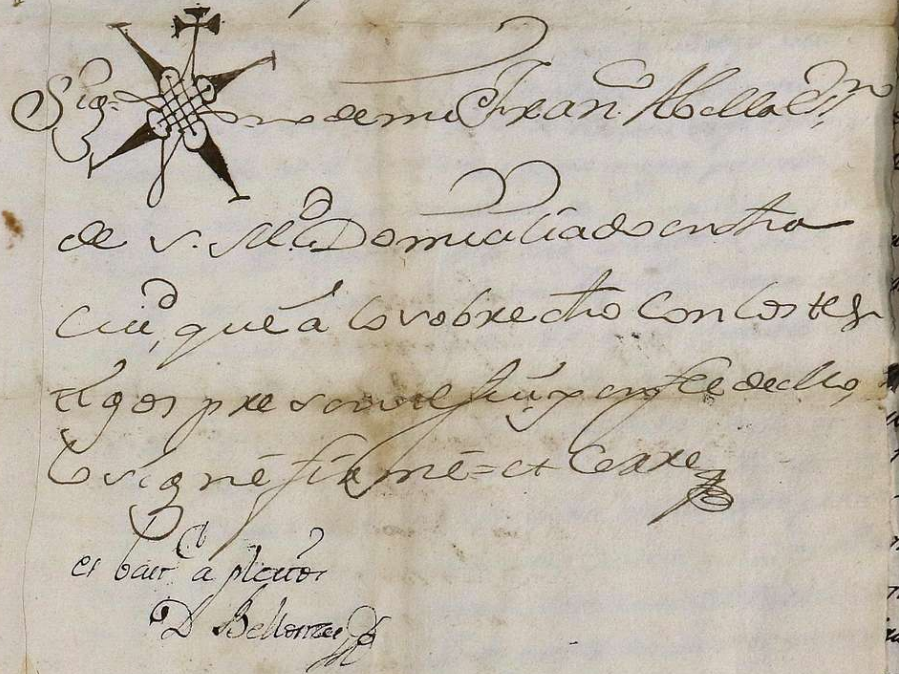 Sig-no de mi Franco. Abella Ssno
de S. Md. Domiciliado en dha
Ciud, que à lo sobre dho con los tes
tigos prestes fui, y en fèe de ello,
lo signè firmè = et Cerre
es bast a pleitos
Dr Bellon